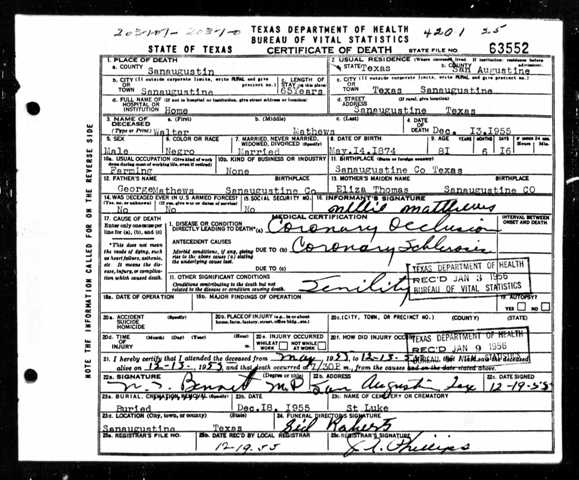 TEXAS DEPARTMENT OF HEALTH
BUREAU OF VITAL STATISTICS
4201 25
STATE OF TEXAS CERTIFICATE OF DEATH STATE FILE NO. 63552
1. PLACE OF DEATH
a. COUNTY Sanaugustin
2. USUAL RESIDENCE
a. STATE Texas b. COUNTY San Augustine
b. CITY OR TOWN Sanaugustine
c. LENGTH OF STAY 65Years
c. CITY OR TOWN Texas Sanaugustine
d. FULL NAME OF HOSPITAL OR INSTITUTION Home
d. STREET ADDRESS Sanaugustine Texas
3. NAME OF DECEASED (Type or Print) a. (First) Walter b. (Middle) c. (Last) Mathews
4. DATE OF DEATH Dec. 13.1955
5. SEX Male
6. COLOR OR RACE Negro
7. MARRIED, NEVER MARRIED, WIDOWED, DIVORCED (Specify) Married
8. DATE OF BIRTH May.14.1874
9. AGE 81 6 16
10a. USUAL OCCUPATION Farming
10b. KIND OF BUSINESS OR INDUSTRY None
11. BIRTHPLACE (State or foreign country) Sanaugustine Co Texas
12. FATHER'S NAME BIRTHPLACE
George Mathews Sanaugustine Co
13. MOTHER'S MAIDEN NAME BIRTHPLACE
Eliza Thomas Sanaugustine CO
14. WAS DECEASED EVER IN U.S. ARMED FORCES? No No
15. SOCIAL SECURITY NO. No
16. INFORMANT'S SIGNATURE
Millie Matthews
17. CAUSE OF DEATH
Enter only one cause per line for (a), (b), and (c)
MEDICAL CERTIFICATION
INTERVAL BETWEEN ONSET AND DEATH
I. DISEASE OR CONDITION DIRECTLY LEADING TO DEATH* (a) Coronary Occlusion
*This does not mean the mode of dying, such as heart failure, asthenia, etc. It means the disease, injury, or complication which caused death.
ANTECEDENT CAUSES
Morbid conditions, if any, giving rise to the above cause (a) stating the underlying cause last.
DUE TO (b) Coronary
DUE TO (c)
II. OTHER SIGNIFICANT CONDITIONS
Conditions contributing to the death but not related to the disease or condition causing death.
Senility
TEXAS DEPARTMENT OF HEALTH
REC'D JAN 3 1956
BUREAU OF VITAL STATISTICS
18a. DATE OF OPERATION
18b. MAJOR FINDINGS OF OPERATION
19. AUTOPSY? YES NO
20a. ACCIDENT SUICIDE HOMICIDE (Specify)
20b. PLACE OF INJURY
20c. (CITY, TOWN, OR PRECINCT NO.) (COUNTY) (STATE)
20d. TIME OF INJURY (Month) (Day) (Year) (Hour)
20e. INJURY OCCURRED WHILE AT WORK NOT WHILE AT WORK
20f. HOW DID INJURY OCCUR?
TEXAS DEPARTMENT OF HEALTH
REC'D JAN 9 1956
21. I hereby certify that I attended the deceased from May 1955, to 12-13-
alive on 12-13-1955 and that death occurred at 7/30P m., from the causes and on the date stated above.
22a. SIGNATURE (Degree or title) 22b. ADDRESS 22c. DATE SIGNED
Bennett MD San Augustin Tex 12-19-55
23a. BURIAL, CREMATION, REMOVAL (Specify) Buried
23b. DATE Dec.18, 1955
23c. NAME OF CEMETERY OR CREMATORY St Luke
23d. LOCATION (City, town, or county) (State)
Sanaugustine Texas
24. FUNERAL DIRECTOR'S SIGNATURE
Sid Roberts
25a. REGISTRAR'S FILE NO.
25b. DATE REC'D BY LOCAL REGISTRAR 12-19-55
25c. REGISTRAR'S SIGNATURE
Phillips
NOTE THE INFORMATION CALLED FOR ON THE REVERSE SIDE